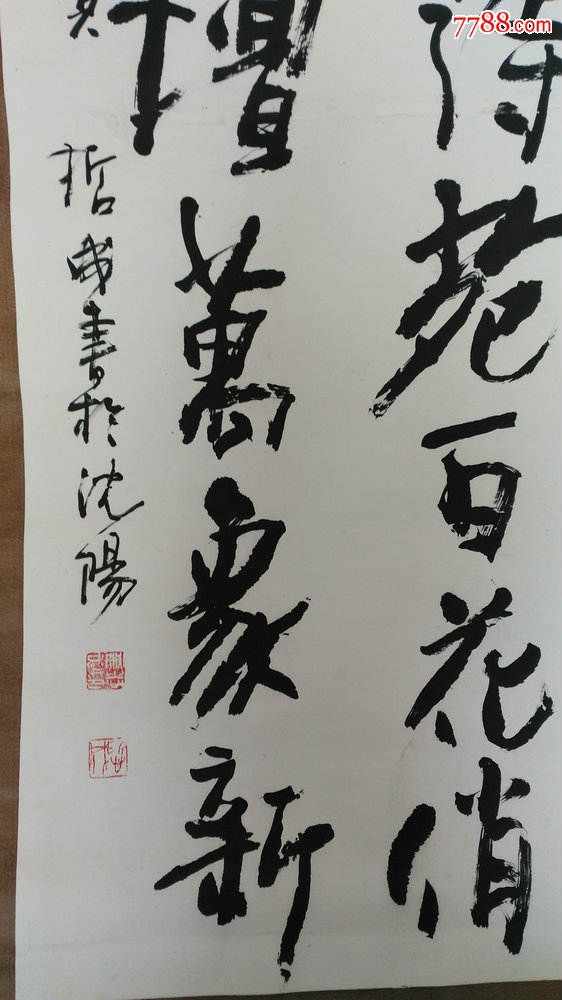 7788.com
诗苑百花俏
坛萬象新
哲成書於沈陽